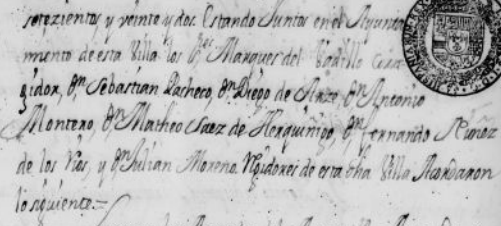 setezientos, y veinte y dos. Estando Juntos en el Ayunta
miento de esta Villa los Sres Marques del Vadillo Corre
gidor, Dn Sebastian Pacheco, Dn Diego de Arze, Dn Antonio
Montero, Dn Matheo Saez de Herquiñigo, Dn fernando Muñoz
de los Rios, y Dn Julian Moreno. Regidores de esta dha Villa Acordaron
lo siguiente =